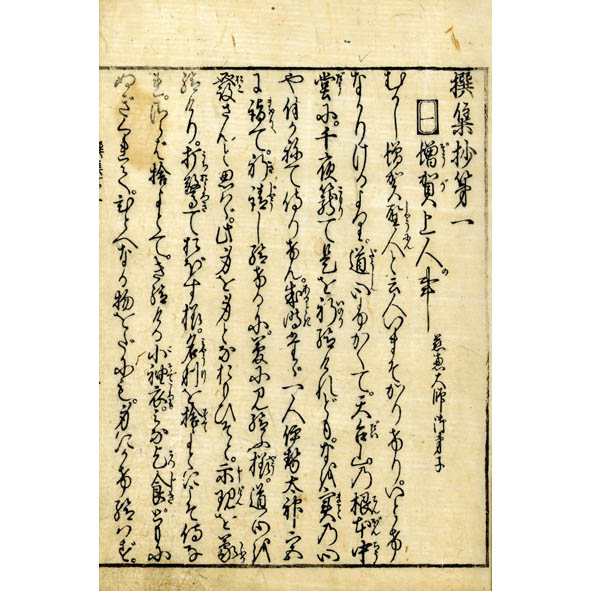 撰集抄第一
一 増賀上人の事 慈恵大師御弟子
むかし増賀聖人と云人いまそかりけり。いとけ
なかりけるより。道心ふかくて。天台山の根本中
堂に。千夜籠て是を祈給けれども。なを実の心
や付かねて侍りけん。或時たゞ一人伊勢太神宮
に詣て。祈請し給けるに。夢に見給ふ様。道心を
發さんと思はゞ。此身を身となおもひそと。示現を蒙
給けり。打驚ておぼす様。名利を捨よとにこそ侍るな
れ。さらば捨よとて。き給ける小袖衣。みな乞食どもに
ぬぎくれて。ひとへなる物をだにも。身にかけ給はず。